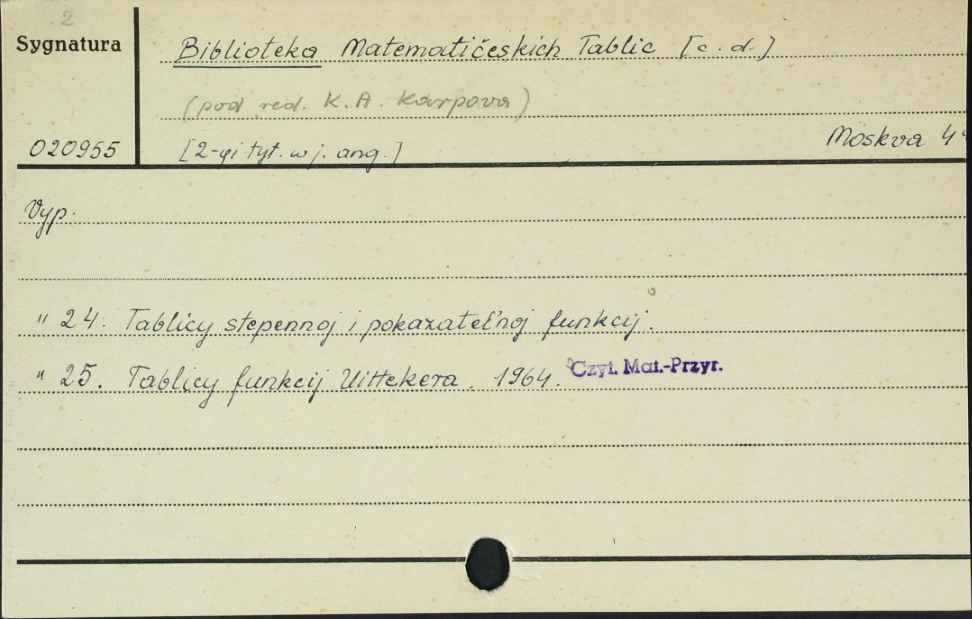 2
Sygnatura
Biblioteka Matematičeskich Tablic [c.d.]
(pod red. K.A. Karpova)
020955
[2-gi tyt. w j. ang.]
Moskva 4°
Vyp.
" 24. Tablicy stepennoj i pokazatel'noj funkcij.
" 25. Tablicy funkcij Uittekera. 1964.
Czyt. Mat.-Przyr.